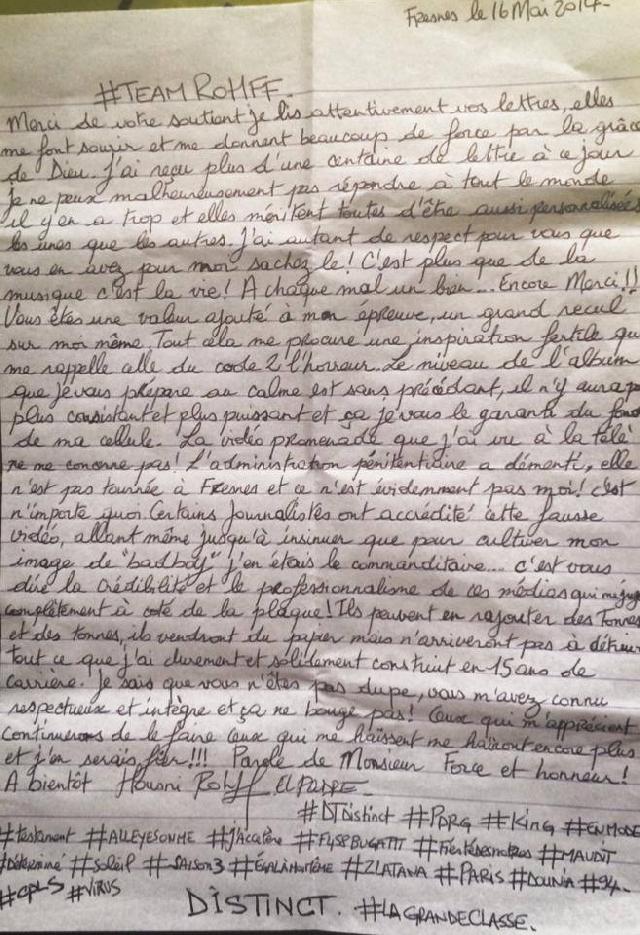 Fresnes le 16 Mai 2014-
#TEAM ROHFF.
Merci de votre soutient je lis attentivement vos lettres, elles
me font sourir et me donnent beaucoup de force par la grâce
de Dieu. J'ai reçu plus d'une centaine de lettre à ce jour
je ne peux malheureusement pas répondre à tout le monde
il y en a trop et elles méritent toutes d'être aussi personnalisées
les unes que les autres. J'ai autant de respect pour vous que
vous en avez pour moi sachez le! C'est plus que de la
musique c'est la vie! A chaque mal un bien... Encore Merci!!
Vous êtes une valeur ajouté à mon épreuve, un grand recul
sur moi même. Tout cela me procure une inspiration fertile qui
me rappelle celle du code 2 l'horreur. Le niveau de l'album
que je vous prépare au calme est sans précédant, il n'y aura pas
plus consistant et plus puissant et ça je vous le garanti du fond
de ma cellule. La vidéo promenade que j'ai vu à la télé
ne me concerne pas! L'administration pénitentiaire a démenti, elle
n'est pas tournée à Fresnes et ce n'est évidemment pas moi! c'est
n'importe quoi. Certains journalistes ont accrédité cette fausse
vidéo, allant même jusqu'à insinuer que pour cultiver mon
image de "badboy" j'en étais le commanditaire... c'est vous
dire la crédibilité et le professionnalisme de ces médias qui me juge
complètement à coté de la plaque! Ils peuvent en rajouter des Tonnes
et des tonnes, ils vendront du papier mais n'arriveront pas à détruire
tout ce que j'ai durement et solidement construit en 15 ans de
carrière. Je sais que vous n'êtes pas dupe, vous m'avez connu
respectueux et intègre et ça ne bouge pas! Ceux qui m'apprécient
continuerons de le faire ceux qui me haïssent me haïront encore plus
et j'en serais fier!!! Parole de Monsieur Force et honneur!
A bientôt Houari Rohff EL PADRE
#DJDistinct #PDRG #King #ENMODE
#testament #ALLEYESONME #J'Accélère #FUSEBUGATTI #MAUDIT
#Déterminé #Soleil #SAISON3 #ZLATANA #PARIS #DOUNIA #94-
#CPLS #VIRUS
DISTINCT. #LAGRANDECLASSE.